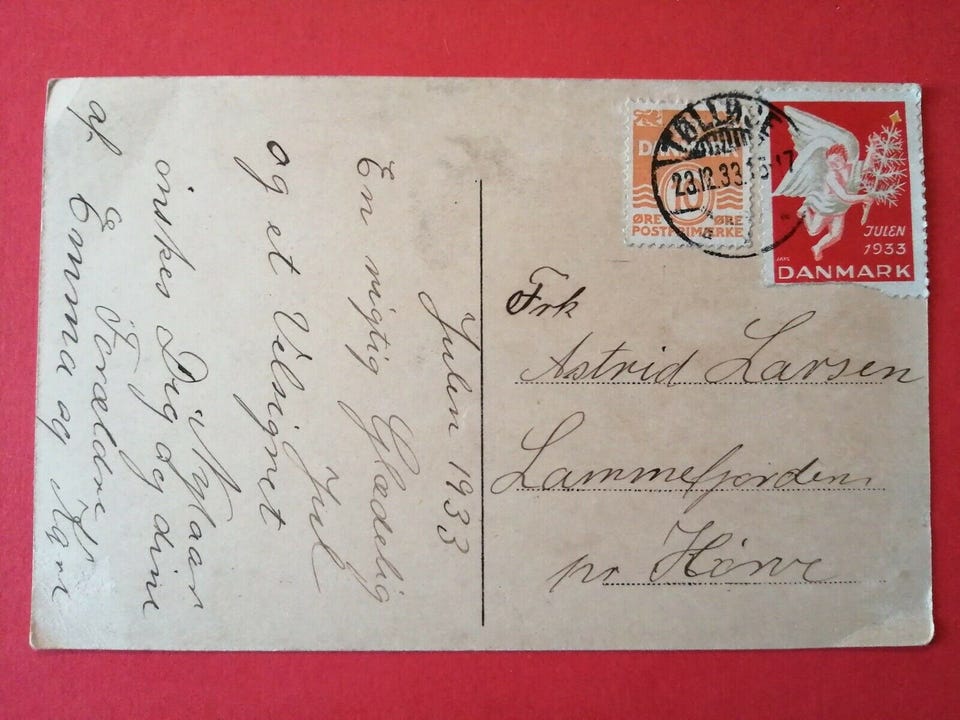 Julen 1933
En rigtig Glædelig Jul
og et Velsignet Nytaar
ønskes Dig og dine
Forældre
af Emma og
DANMARK
10
ØRE ØRE
POSTFRIMÆRKE
TØLLØSE
23.12.33.
JULEN
1933
DANMARK
Frk
Astrid Larsen
Lammefjorden
pr Hørve